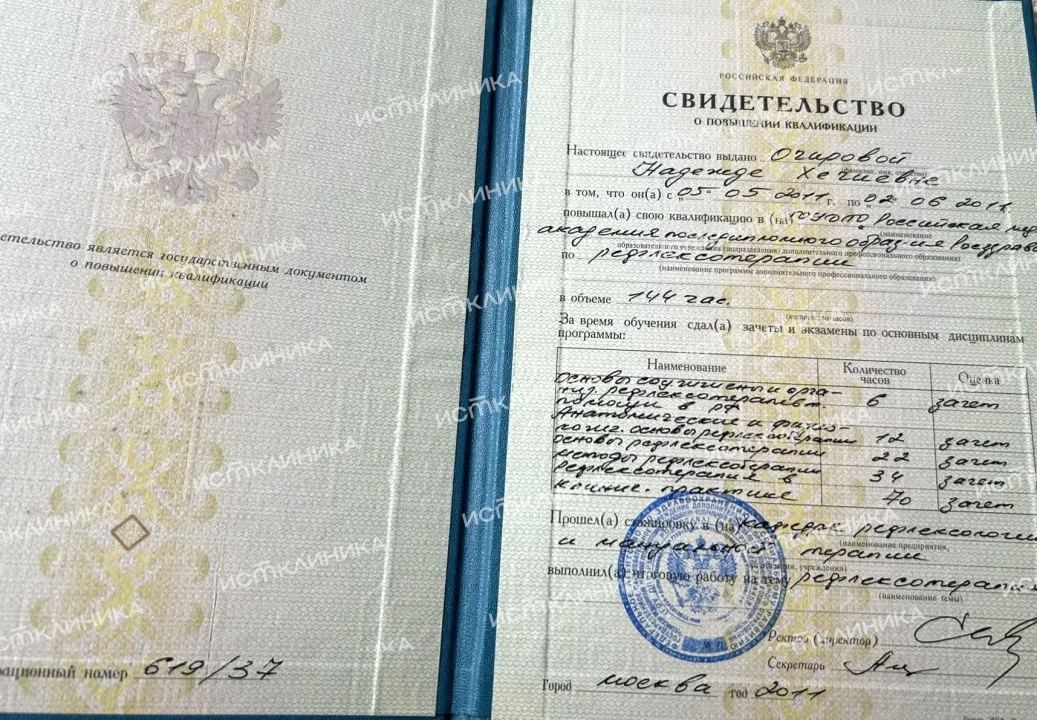 свидетельство является государственным документом
о повышении квалификации
регистрационный номер 619/37
РОССИЙСКАЯ ФЕДЕРАЦИЯ
СВИДЕТЕЛЬСТВО
О ПОВЫШЕНИИ КВАЛИФИКАЦИИ
Настоящее свидетельство выдано Очировой
Надежде
в том, что он(а) с „05“ 05 2011 г. по „02“ 06 2011
повышал(а) свою квалификацию в (на) Российская
(наименование
академия последипломного образ-ия Росздрава
образовательного учреждения (подразделения) дополнительного профессионального образования)
по рефлексотерапии
(наименование программы дополнительного профессионального образования)
в объеме 144 час.
(количество часов)
За время обучения сдал(а) зачеты и экзамены по основным дисциплинам
программы:
Наименование Количество часов Оценка
Основы соц. гигиены и орга-
низ. рефлексотерапевт.
помощи в РФ 6 зачет
Анатомические и физио-
логич. основы рефлексотерапии 12 зачет
основы рефлексотерапии 22 зачет
методы рефлексотерапии 34 зачет
Рефлексотерапия в
клинич. практике 70 зачет
Прошел(а) стажировку в (на) кафедре рефлексологии
(наименование предприятия,
и мануальной терапии
организации, учреждения)
выполнил(а) итоговую работу на тему рефлексотерапия
(наименование темы)
Ректор (директор)
Секретарь
М.П.
Город Москва год 2011
ИСТКЛИНИКА